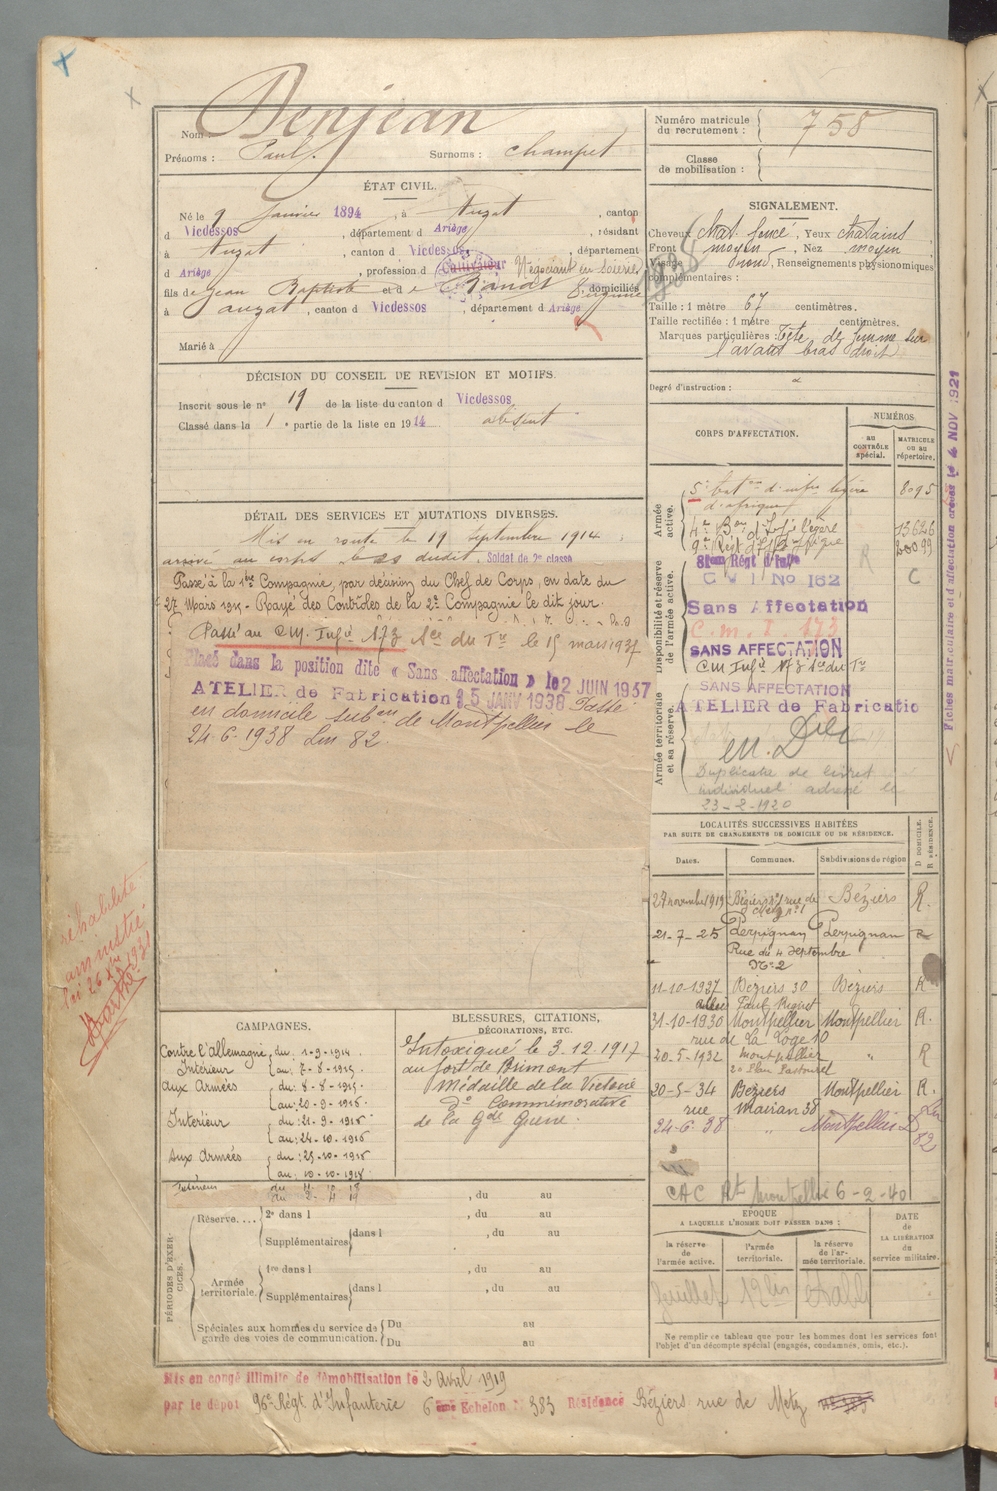 Nom : Denjean
Prénoms : Paul J. Surnoms : Champet
ÉTAT CIVIL.
Né le 9 Janvier 1894, à Auzat, canton
d Vicdessos, département d Ariège, résidant
à Auzat, canton d Vicdessos, département
d Ariège, profession d Cultivateur Négociant en soieries
fils de Jean Baptiste et d e Pandt Virginie domiciliés
à auzat, canton d Vicdessos, département d Ariège
Marié à
DÉCISION DU CONSEIL DE REVISION ET MOTIFS.
Inscrit sous le n° 19 de la liste du canton d Vicdessos
Classé dans la 1 e partie de la liste en 1914 absent
DÉTAIL DES SERVICES ET MUTATIONS DIVERSES.
Mis en route le 19 septembre 1914
arrivé au corps le 23 dudit, Soldat de 2e classe
Passé à la 1re Compagnie, par décision du Chef de Corps, en date du
27 Mars 1915 - Rayé des Contrôles de la 2e Compagnie le dit jour.
Passé au CM Infie 173 Ace du Tre le 15 mars 1937
Placé dans la position dite « Sans affectation » le 2 JUIN 1937
ATELIER de Fabrication 5 JANV 1938 Passé
en domicile subon de Montpellier le
24-6-1938 Lm 82
réhabilité
amnistié
loi 26 1931
Barthe
CAMPAGNES.
Contre l'Allemagne du : 1-9-1914.
Intérieur au : 7-8-1915.
aux Armées du : 8-8-1915.
au : 20-9-1916.
Intérieur du : 21-9-1916.
au : 24-10-1916
aux Armées du : 25-10-1916
au : 10-10-1918
Intérieur du 11 10 18
au 2 4 19
BLESSURES, CITATIONS,
DÉCORATIONS, ETC.
Intoxiqué le 3.12.1917
au fort de Brimont
médaille de la Victoire
do Commémorative
de la Gde Guerre.
PÉRIODES D'EXERCICES.
Réserve.... 2e dans l , du au
Supplémentaires dans l , du au
Armée territoriale. 1re dans l , du au
Supplémentaires dans l , du au
Spéciales aux hommes du service de Du au
garde des voies de communication. Du au
Mis en congé illimité de démobilisation le 2 Avril 1919
par le dépôt 96e Régt d'Infanterie 6 ème Echelon N° 383 Résidence Béziers rue de Metz
Numéro matricule
du recrutement : 758
Classe
de mobilisation :
SIGNALEMENT.
Cheveux chat. foncé, Yeux chatains
Front moyen, Nez moyen
Visage rond, Renseignements physionomiques
complémentaires :
1938
Taille : 1 mètre 67 centimètres.
Taille rectifiée : 1 mètre centimètres.
Marques particulières : Tête de femme sur
l'avant bras droit
Degré d'instruction :
CORPS D'AFFECTATION.
NUMÉROS
au CONTRÔLE spécial.
MATRICULE ou au répertoire.
Armée active.
5e baton d'infie légère 8095
d'afrique
4e Bon d'Infie légère 13626
9e
81eme Régt d'Infie
Disponibilité et réserve de l'armée active.
C V I No 162 C
R
Sans Affectation
C.m.I. 173
SANS AFFECTATION
CM Infie 173 Ace du Tre
Armée territoriale et sa réserve.
SANS AFFECTATION
ATELIER de Fabricatio
Duplicata de livret
individuel adressé le
23-2-1920
Fiches matriculaire et d'affectation créées le 4 NOV 1921
LOCALITÉS SUCCESSIVES HABITÉES
PAR SUITE DE CHANGEMENTS DE DOMICILE OU DE RÉSIDENCE.
D DOMICILE.
R RÉSIDENCE.
Dates. Communes. Subdivisions de région
27 novembre 1919 Béziers rue de Béziers R.
21-7-25 Perpignan Perpignan R
Rue du 4 Septembre
No 2
11-10-1927 Béziers 30 Béziers R
allée Paul Riquet
31-10-1930 Montpellier Montpellier R.
rue de La Loge 10
20-5-1932 Montpellier " R
20 Plan Pastourel
20-5-34 Beziers Montpellier R.
rue Mairan 38
24-6-38 " Montpellier D
Lm 82
CAC Art Montpellier 6-2-40
EPOQUE
A LAQUELLE L'HOMME DOIT PASSER DANS :
DATE
de
LA LIBÉRATION
du
service militaire.
la réserve
de
l'armée active.
l'armée
territoriale.
la réserve
de l'armée territoriale.
Ne remplir ce tableau que pour les hommes dont les services font
l'objet d'un décompte spécial (engagés, condamnés, omis, etc.).